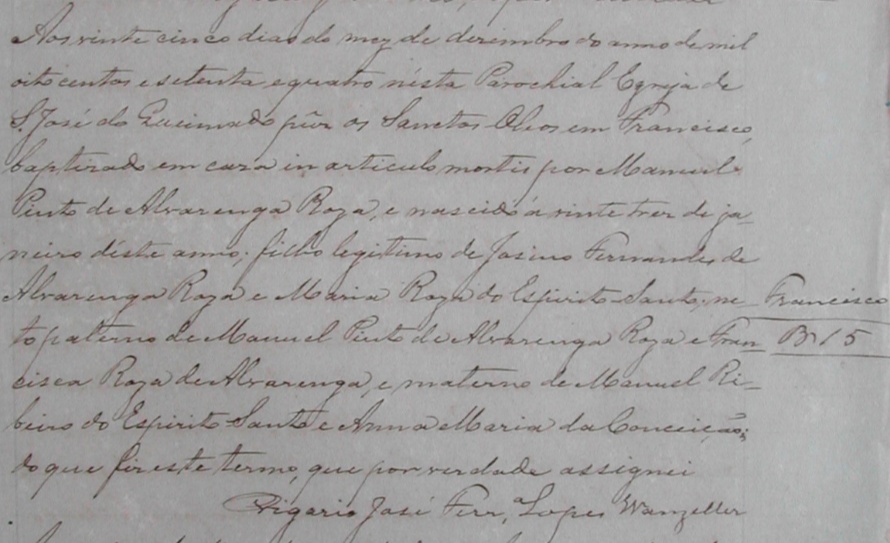 Aos vinte cinco dias do mez de dezembro do anno de mil
oito centos e setenta e quatro nésta Parochial Egreja de
S. José do Queimado puz os Sanctos Oleos em Francisco,
baptizado em caza in articulo mortis por Manuel
Pinto de Alvarenga Roza, e nascido á vinte trez de ja-
neiro déste anno; filho legitimo de Josino Fernandes de
Alvarenga Roza e Maria Roza do Espirito-Santo; ne-
Francisco
to paterno de Manuel Pinto de Alvarenga Roza e Fran-
B 15
cisca Roza de Alvarenga, e materno de Manuel Ri-
beiro do Espirito Santo e Anna Maria da Conceição;
do que fiz este termo, que por verdade assignei
Vigario José Ferr.a Lopes Wanzeller